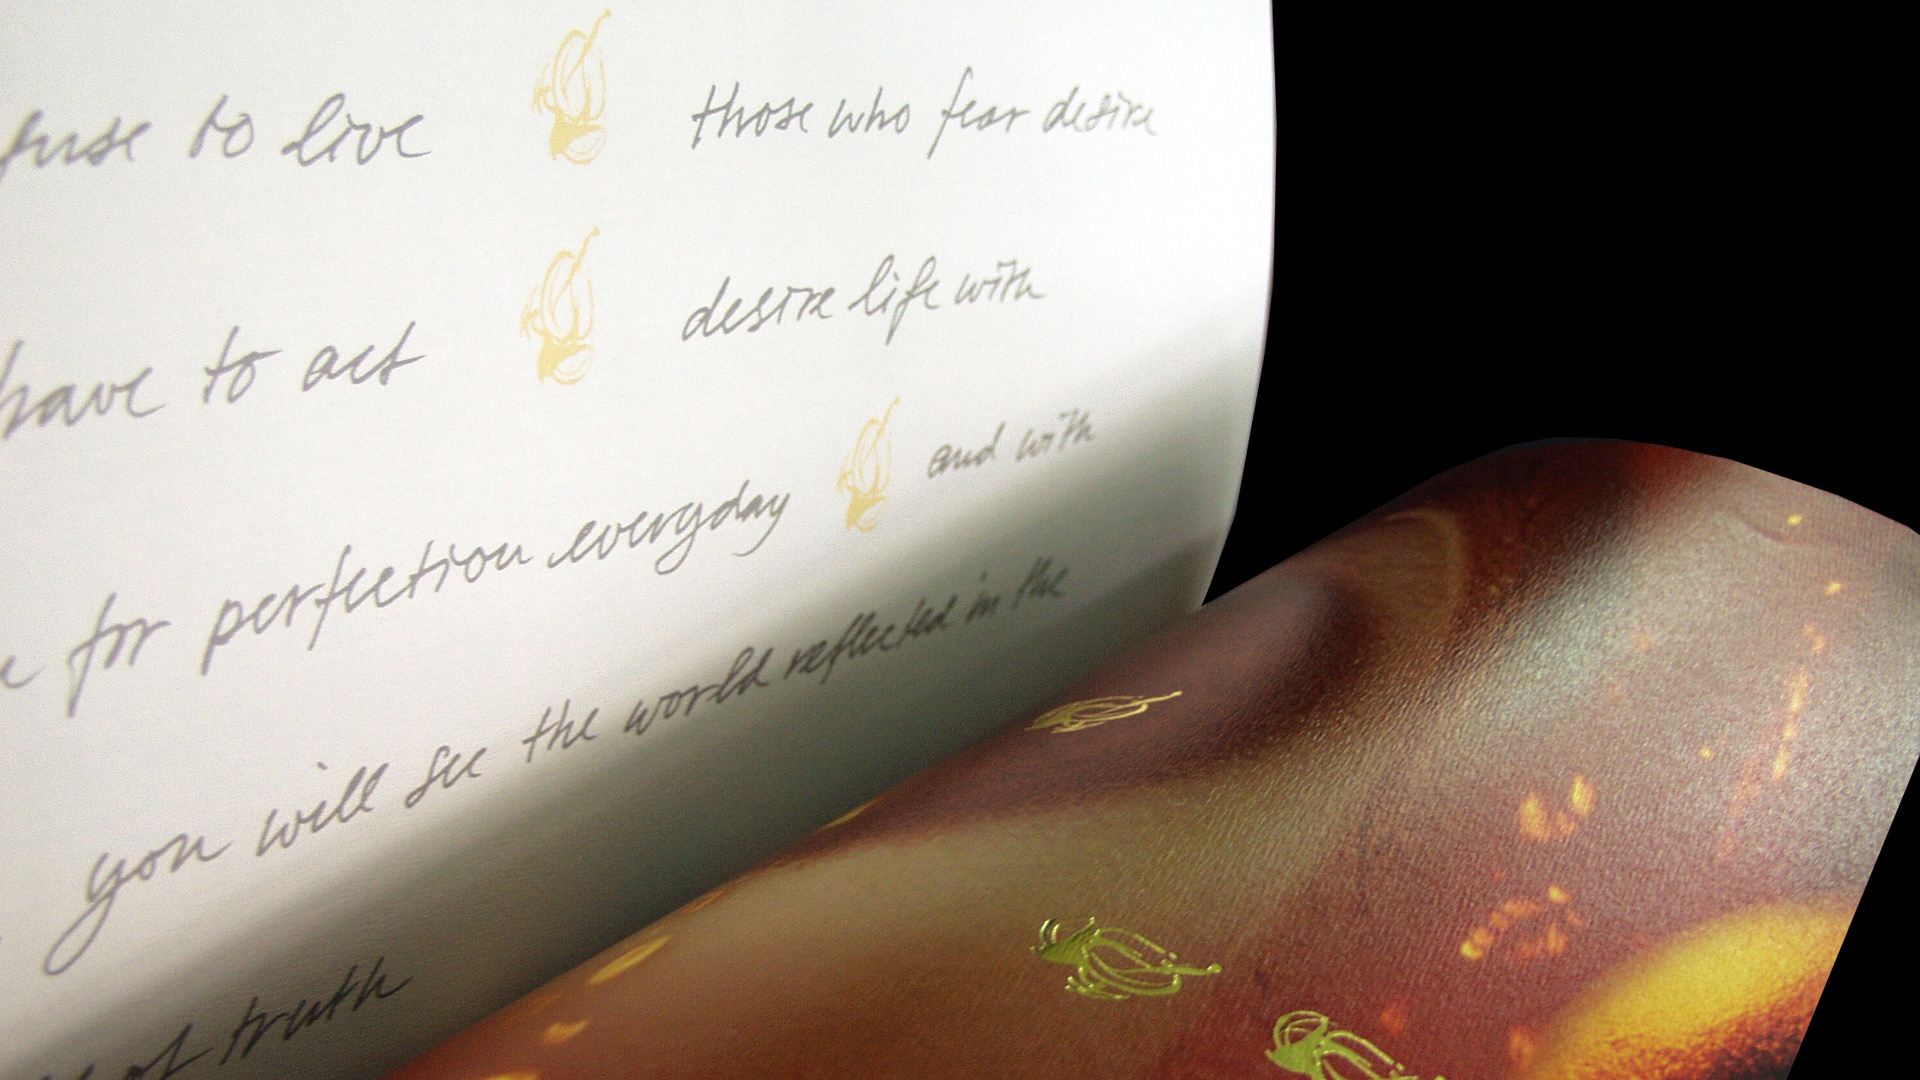 fuse to live those who fear desire
have to act desire life with
for perfection everyday and with
you will see the world reflected in the
of truth